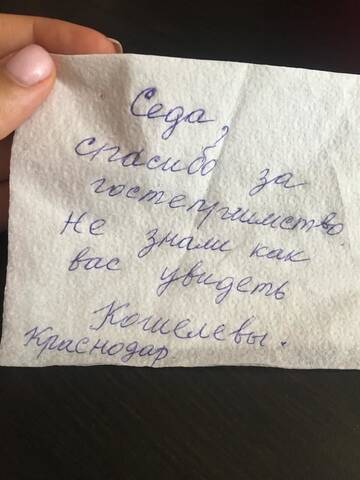 Седа,
спасибо за
гостеприимство.
Не знали как
вас увидеть
Кошелевы.
Краснодар